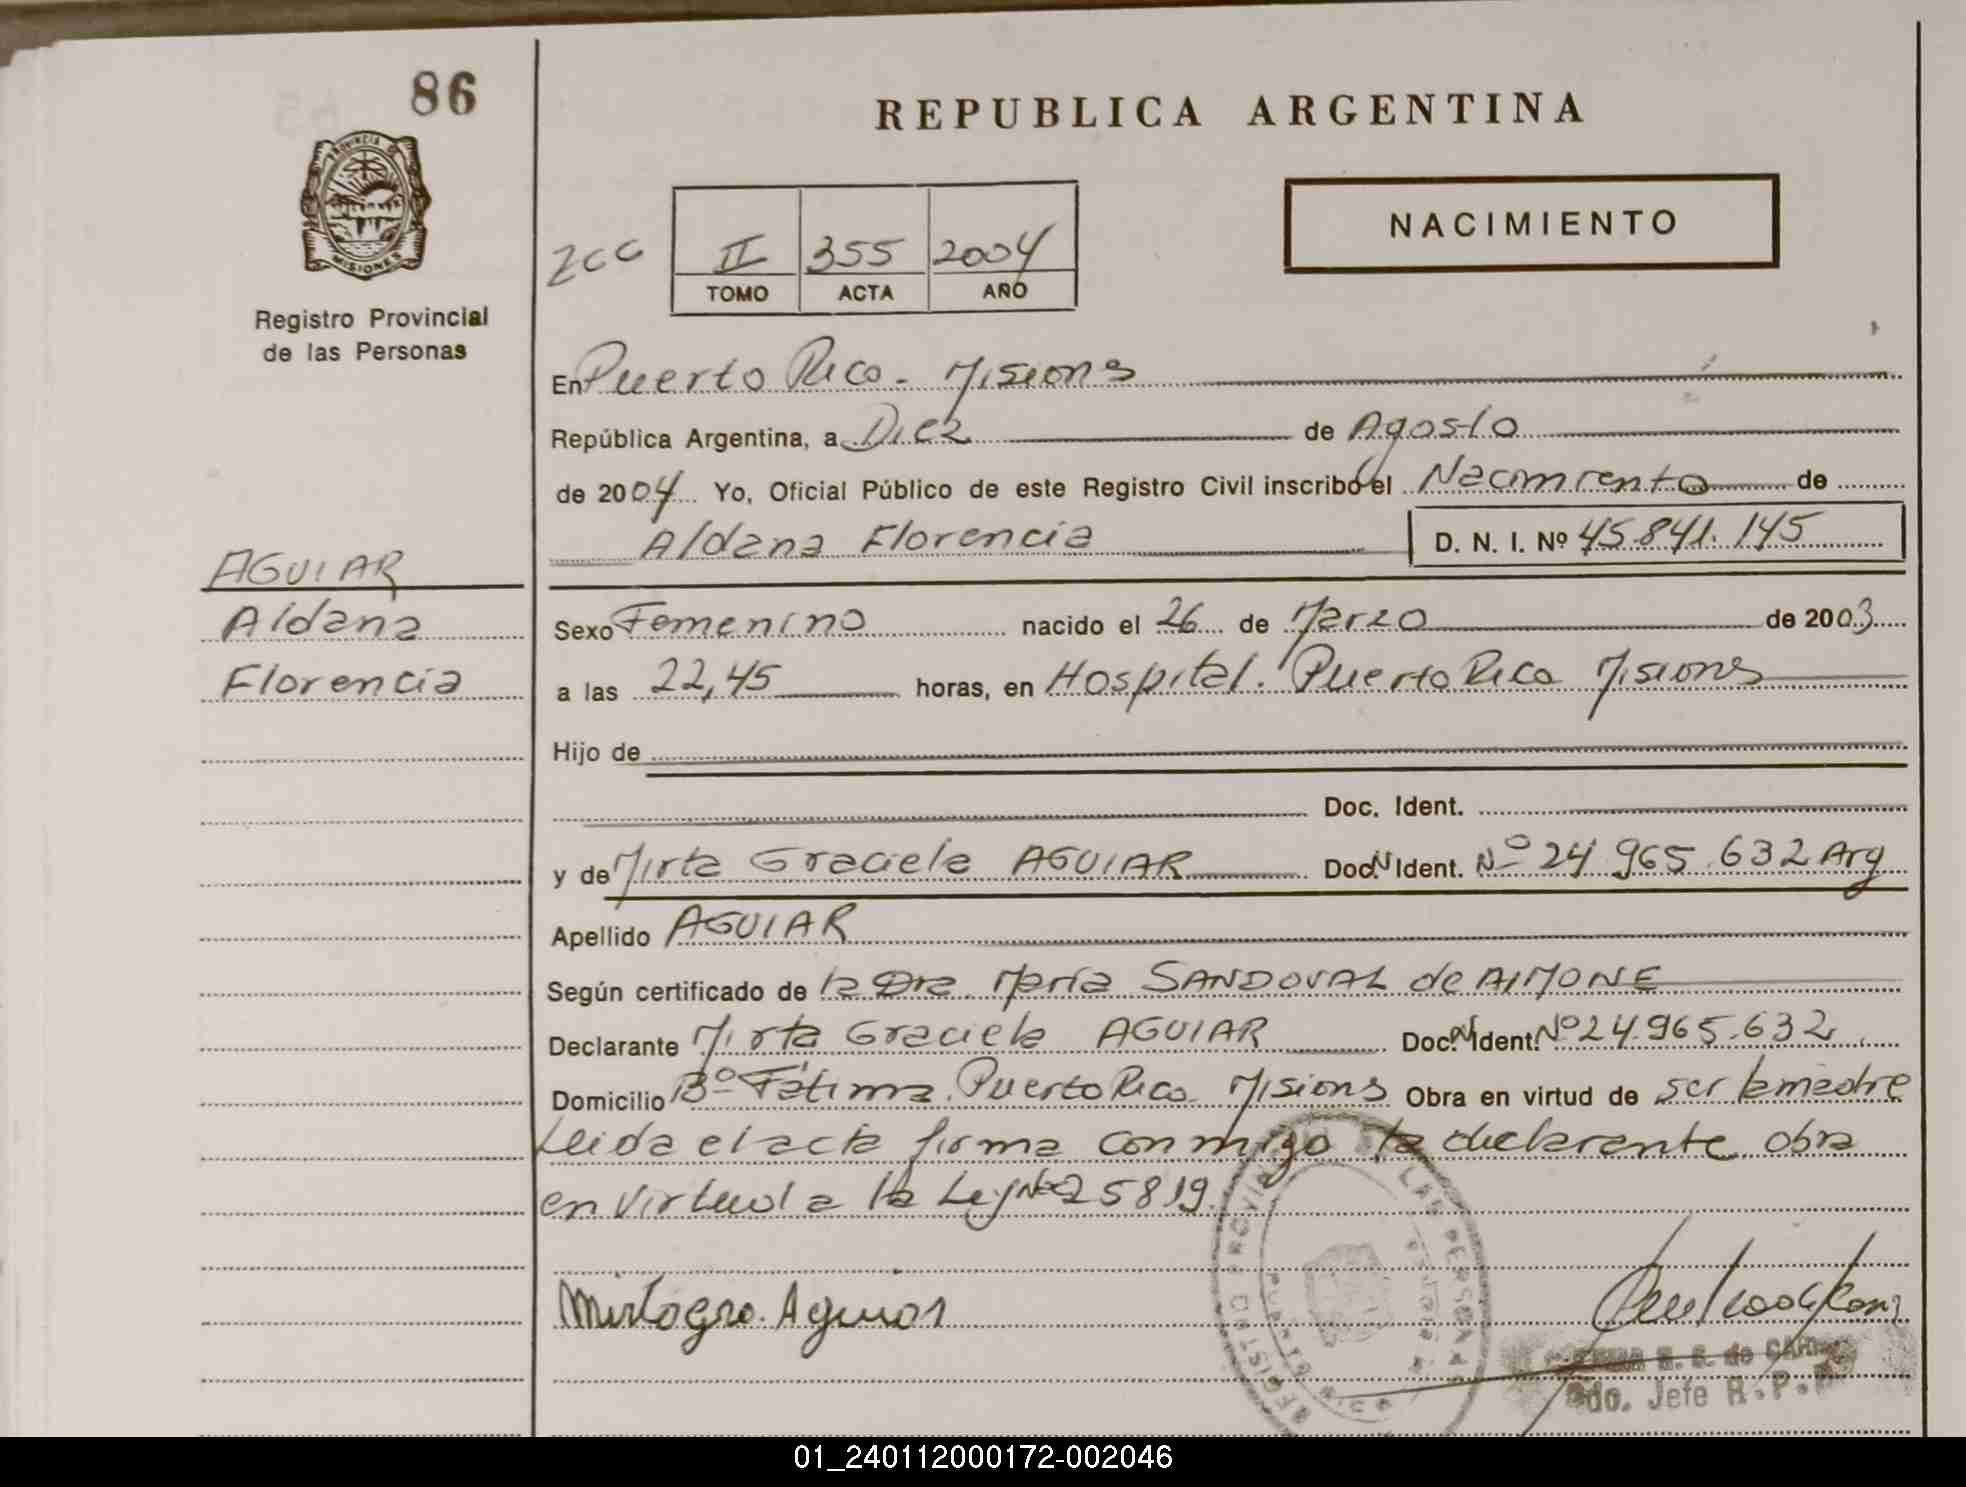 86
REPUBLICA ARGENTINA
PROVINCIA DE
MISIONES
Registro Provincial
de las Personas
NACIMIENTO
II 355 2004
TOMO ACTA AÑO
En Puerto Rico - Misions
República Argentina, a Diez de Agosto
de 2004 Yo, Oficial Público de este Registro Civil inscribo el Nacimiento de
Aldana Florencia D. N. I. Nº 45.841.145
AGUIAR
Aldana
Florencia
Sexo Femenino nacido el 26 de Marzo de 2003
a las 22,45 horas, en Hospital. Puerto Rico Misions
Hijo de
Doc. Ident.
y de Mirta Graciela AGUIAR Doc. N Ident. Nº 24 965.632 Arg
Apellido AGUIAR
Según certificado de la Dra. María SANDOVAL de AIMONE
Declarante Mirta Graciela AGUIAR Doc. N Ident. Nº 24.965.632
Domicilio Bº Fátima. Puerto Rico - Misions Obra en virtud de ser la madre
Leida el acta firma conmigo la declarante obra
en virtud a la Ley Nº 25819.
Aguiar
REGISTRO PROVINCIAL DE LAS PERSONAS
PUERTO RICO
de
Jefe R.P.P.
01_240112000172-002046